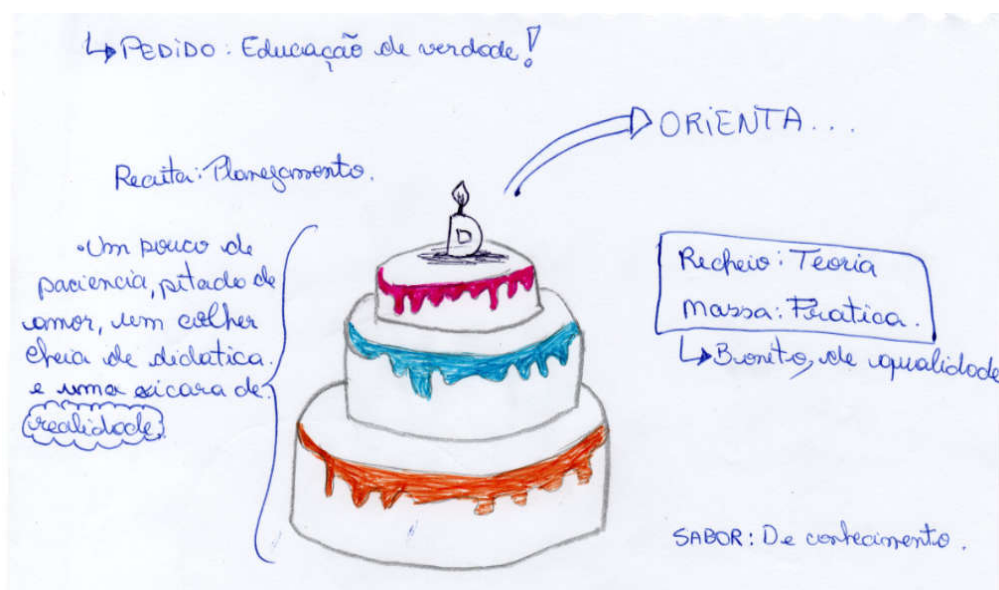 ↳ PEDIDO: Educação de verdade!
ORIENTA...
Receita: Planejamento.
• Um pouco de
paciencia, pitada de
amor, um colher
cheia de didatica.
e uma xicara de
realidade.
D
Recheio: Teoria
Massa: Pratica.
↳ Bonito, de qualidade
SABOR: De conhecimento.